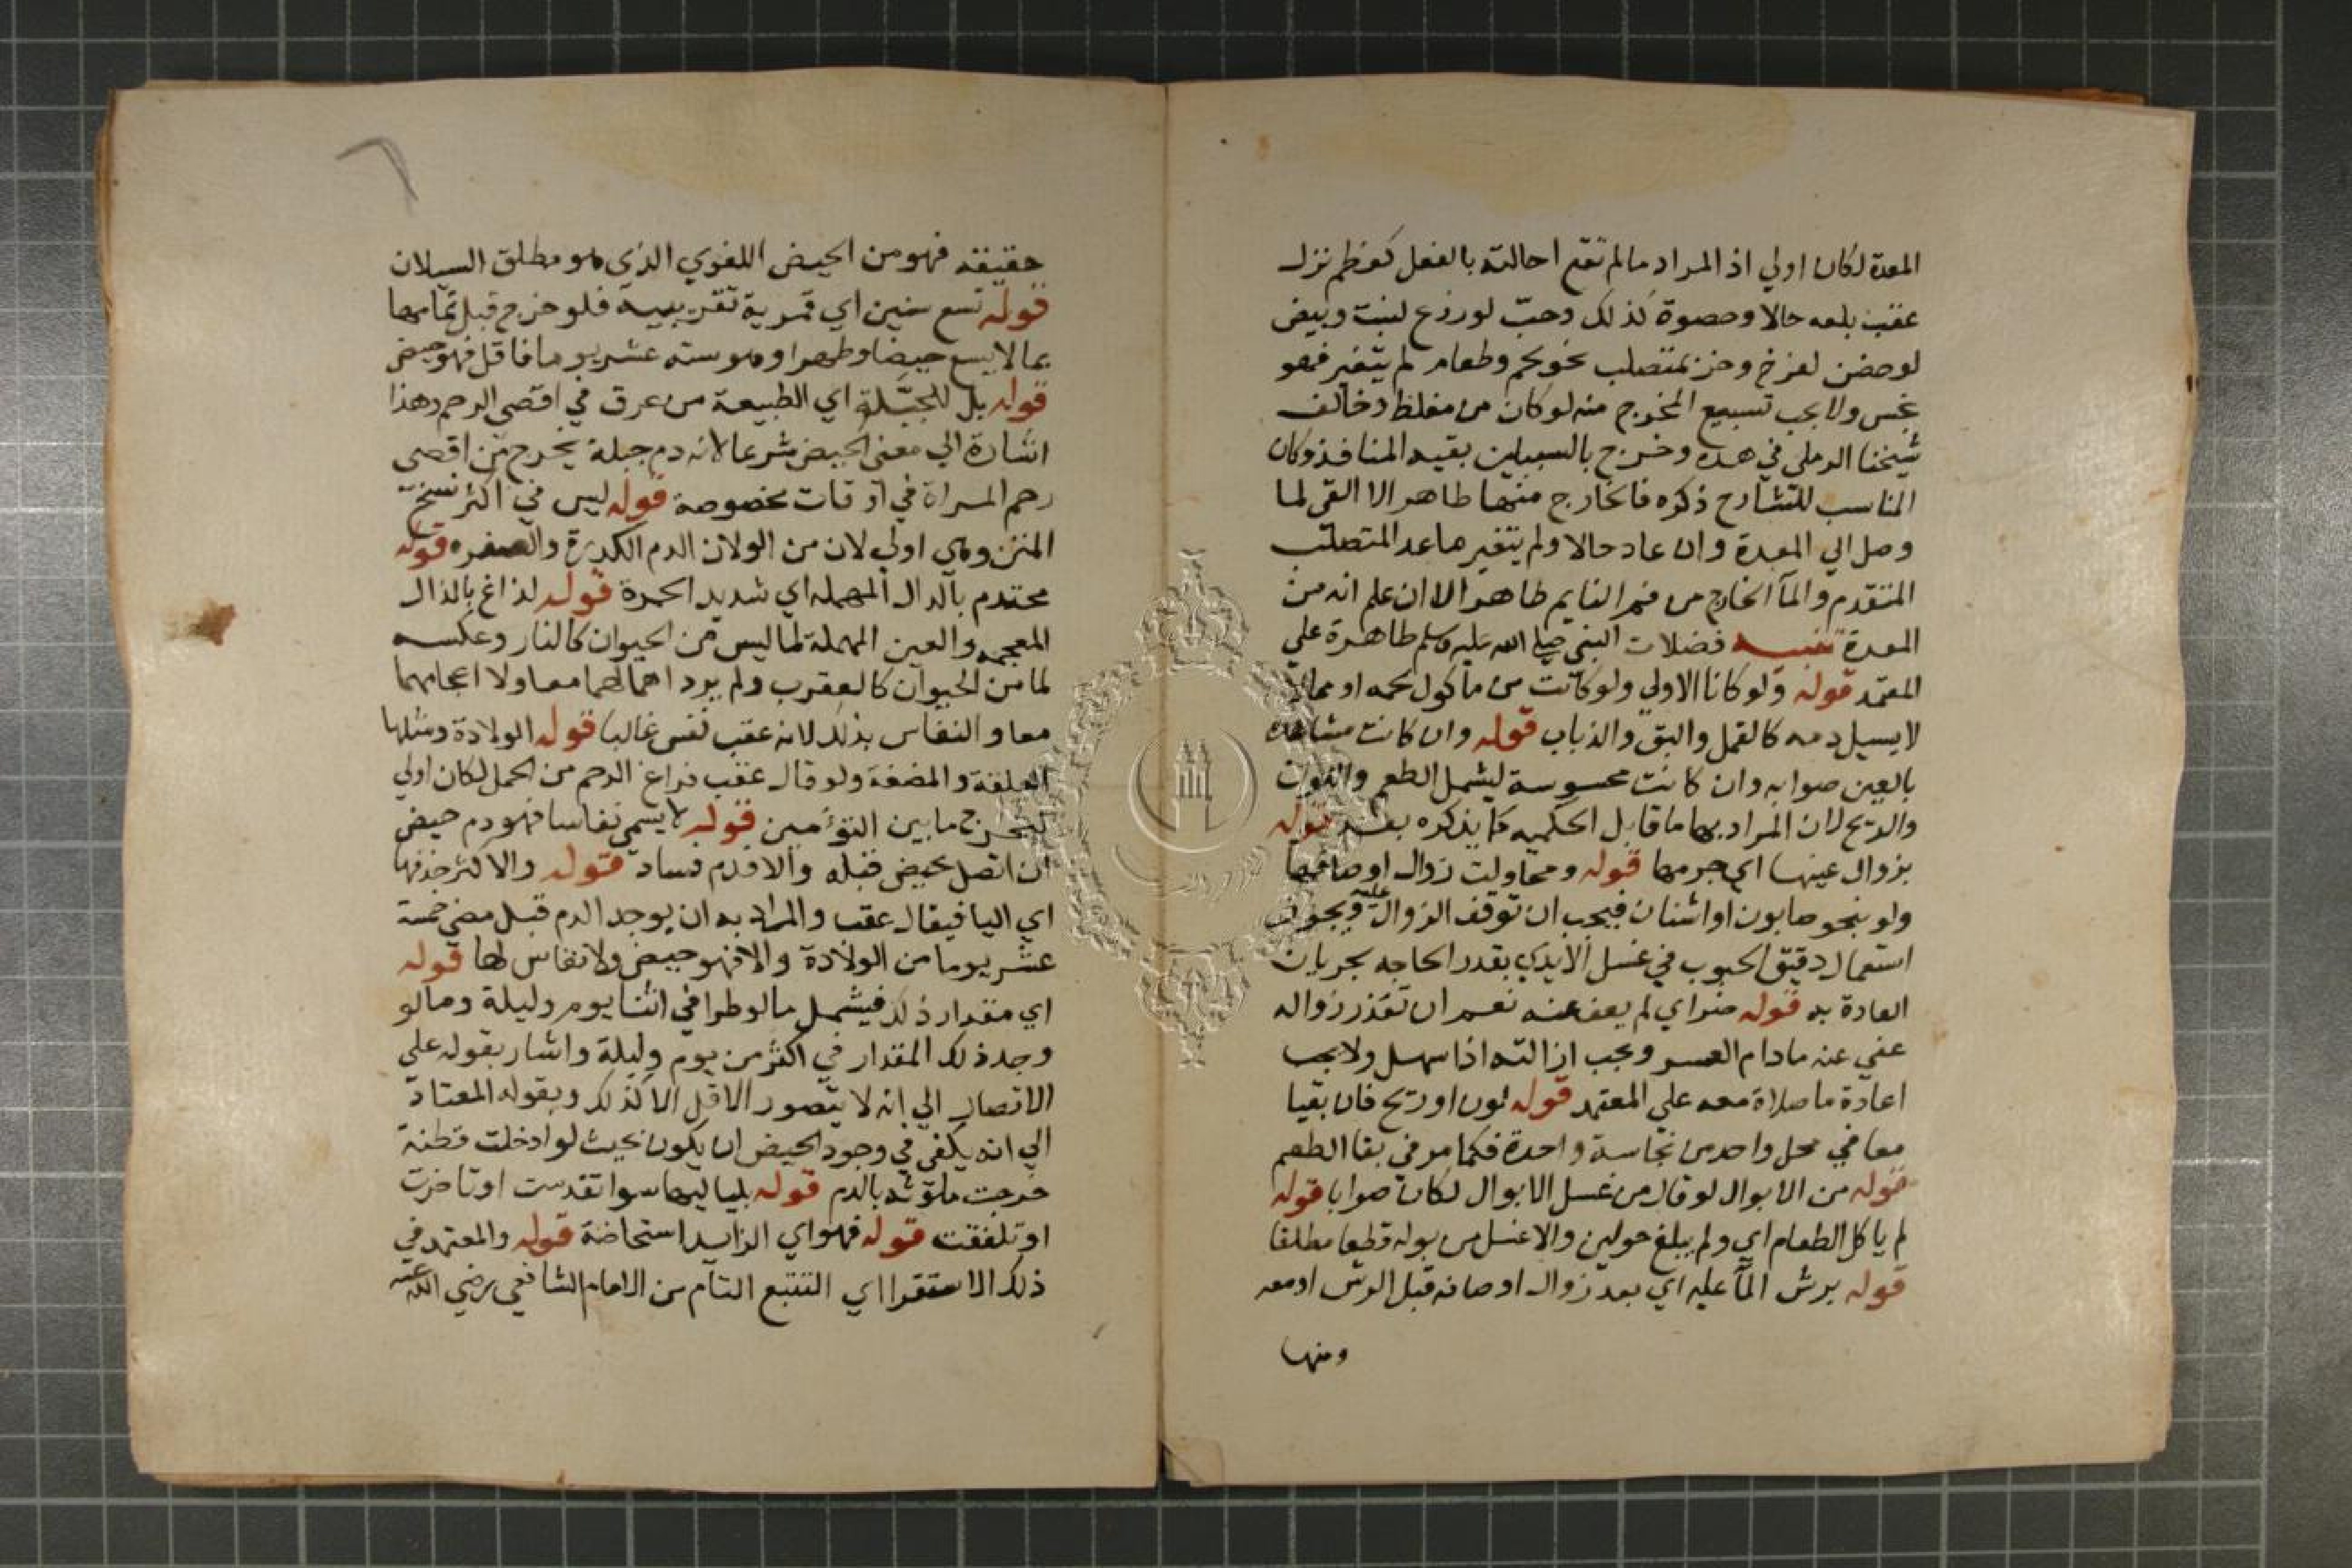 المعدة لكان اولي اذ المراد مالم تقع احالته بالفعل كعظم نزل
عقب بلعه حالا وحصوة كذلك وحبّ لو زرع لنبت وبيض
لوحضن لفرخ وخز بمتصلب نحو لحم وطعام لم يتغير فهو
نجس ولايجب تسبيع المخرج منه لو كان من مغلظ وخالف
شيخنا الرملي في هذه وخرج بالسبيلين بقيه المنافذ وكان
المناسب للشارح ذكره فالخارج منها طاهر الا القي لما
وصل الي المعدة وان عاد حالا ولم يتغير ماعد المتصلب
المتقدم والمآ الخارج من فم النايم طاهر الا ان علم انه من
المعدة تنبيه فضلات النبي صلي الله عليه وسلم طاهرة علي
المعتمد قوله ولو كانا الاولي ولو كانت من ماكول لحمه او مما
لا يسيل دمه كالقمل والبق والذباب قوله وان كانت مشاهدة
بالعين صوابه وان كانت محسوسة ليشمل الطعم واللون
والريح لان المراد بها ما قابل الحكميه كما يذكره بعد قوله
بزوال عينها اي جرمها قوله ومحاولت زوال اوصافها
ولو بنحو صابون او اشنان فيجب ان توقف الزوال عليه ويجوز
استعمال دقيق الحبوب في غسل الايدي بقدر الحاجه بجريان
العادة به قوله ضر اي لم يعف عنه نعم ان تعذر زواله
عفي عنه مادام العسر ويجب ازالته اذا سهل ولايجب
اعادة ما صلاة معه علي المعتمد قوله لون او ريح فان بقيا
معا في محل واحد من نجاسة واحدة فكما مر في بقا الطعم
قوله من الابوال لو قال من غسل الابوال لكان صوابا قوله
لم ياكل الطعام اي ولم يبلغ حولين والا غسل من بوله قطعا مطلقا
قوله برش المآ عليه اي بعد زوال اوصافه قبل الرش او معه
ومنها
حقيقته فهو من الحيض اللغوي الذي هو مطلق السيلان
قوله تسع سنين اي قمرية تقريبية فلو خرج قبل تمامها
بما لا يسع حيضا وطهرا وهو سته عشر يوما فاقل فهو حيض
قوله بل للجبّلة اي الطبيعة من عرق في اقصي الرحم وهذا
اشارة الي معني الحيض شرعا لانه دم جبلة يخرج من اقصي
رحم المراة في اوقات مخصوصة قوله ليس في اكثر نسخ
المتن وهي اولي لان من الولان الدم الكدرة والصفره قوله
محتدم بالدال المهمله اي شديد الحمرة قوله لذاغ بالذال
المعجمه والعين المهملة لما ليس من الحيوان كالنار وعكسه
لما من الحيوان كالعقرب ولم يرد اهمالهما معا ولا اعجامهما
معا و النفاس بذلك لانه عقب نفس غالبا قوله الولادة ومثلها
العلقة والمضغة ولو قال عقب فراغ الرحم من الحمل لكان اولي
ليخرج ما بين التوءمين قوله لا يسمي نفاسا فهو دم حيض
ان اتصل بحيض قبله والا فدم فساد قوله والاكثر حذفها
اي اليا فيقال عقب والمراد به ان يوجد الدم قبل مضي خمسة
عشر يوما من الولادة والا فهو حيض ولا نفاس لها قوله
اي مقدار ذلك فيشمل ما لو طرا في اثنا يوم وليلة وما لو
وجد ذلك المقدار في اكثر من يوم وليلة واشار بقوله علي
الاتصال الي انه لا يتصور الاقل الا كذلك وبقوله المعتاد
الي انه يكفي في وجود الحيض ان يكون بحيث لو ادخلت قطنة
خرجت ملوّثه بالدم قوله بلياليها سوا تقدمت او تاخرت
او تلفقت قوله فهو اي الزايد استحاضة قوله والمعتمد في
ذلك الاستقرا اي التتبع التآم من الامام الشافعي رضي الله عنه